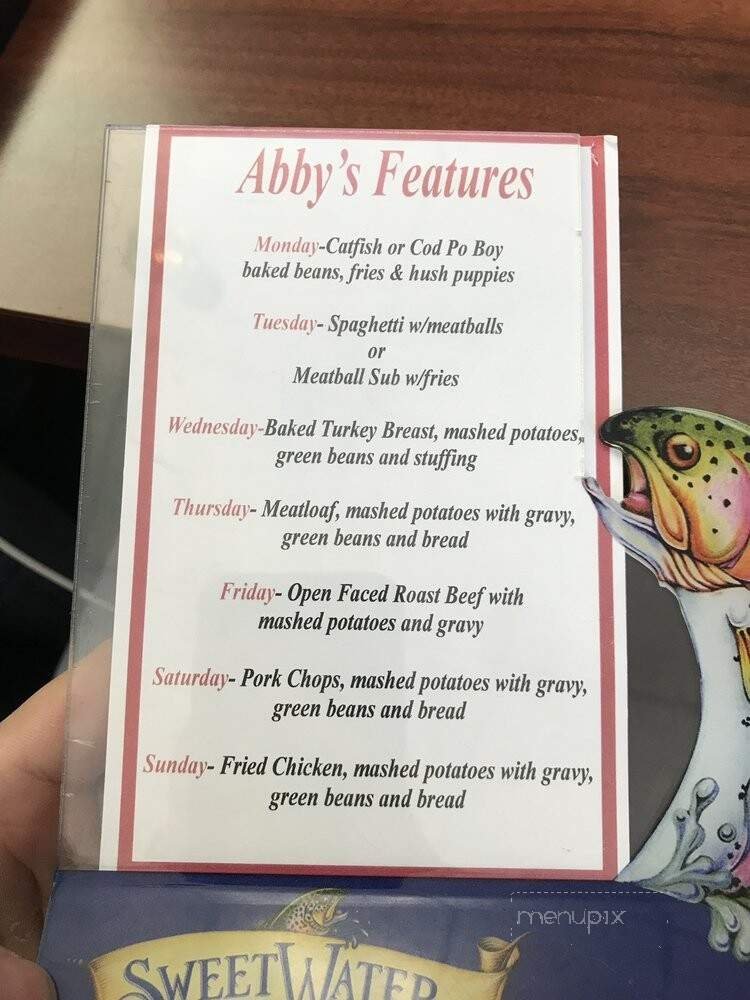 Abby's Features
Monday-Catfish or Cod Po Boy
baked beans, fries & hush puppies
Tuesday- Spaghetti w/meatballs
or
Meatball Sub w/fries
Wednesday-Baked Turkey Breast, mashed potatoes,
green beans and stuffing
Thursday- Meatloaf, mashed potatoes with gravy,
green beans and bread
Friday- Open Faced Roast Beef with
mashed potatoes and gravy
Saturday- Pork Chops, mashed potatoes with gravy,
green beans and bread
Sunday- Fried Chicken, mashed potatoes with gravy,
green beans and bread
menupix
SWEETWATER